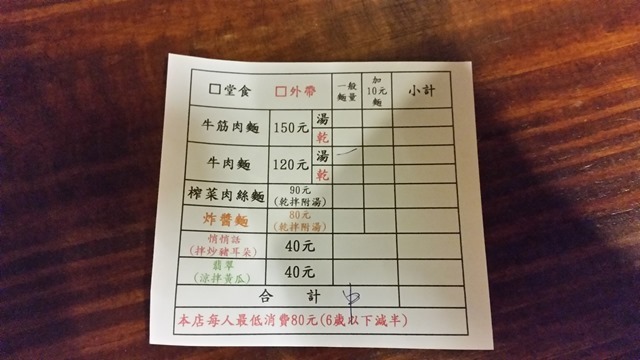 □堂食 □外帶 一般麵量 加10元麵 小計
牛筋肉麵 150元 湯
乾
牛肉麵 120元 湯 一
乾
榨菜肉絲麵 90元(乾拌附湯)
炸醬麵 80元(乾拌附湯)
悄悄話(拌炒豬耳朵) 40元
翡翠(涼拌黃瓜) 40元
合計
本店每人最低消費80元(6歲以下減半)